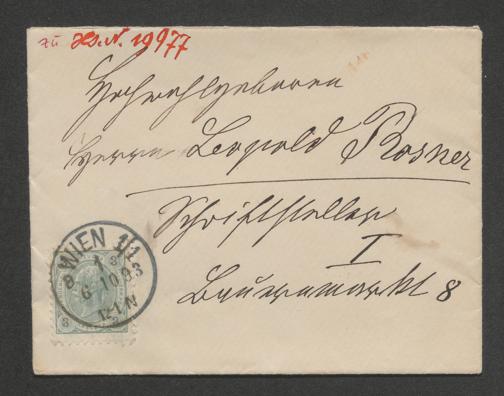 zu Hs.N. 19977
Hochwohlgeboren
Herrn Leopold Rosner
Schriftsteller
I
Bauernmarkt 8
WIEN 1/1
6 10 93
12-1N
8